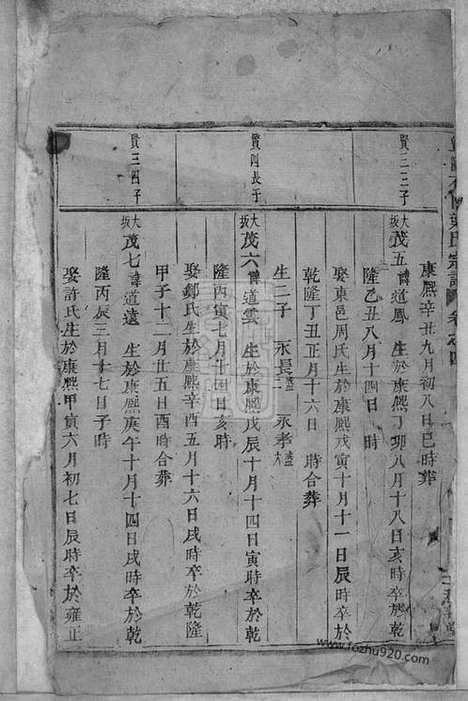 氏宗譜 卷之四
賢三三子
賢四長子
賢三四子
康熙辛丑九月初八日巳時葬
大坂 茂五 諱道鳳 生於康熙丁卯八月十八日亥時卒於乾
隆乙丑八月十四日 時
娶東邑周氏生於康熙戊寅十月十一日辰時卒於
乾隆丁丑正月十六日 時合葬
生二子 永長 永孝
大坂 茂六 諱道雲 生於康熙戊辰十月十四日寅時卒於乾
隆丙寅七月十四日亥時
娶鄭氏生於康熙辛酉五月十六日戌時卒於乾隆
甲子十二月廿五日酉時合葬
大坂 茂七 諱道遠 生於康熙庚午十月十四日戌時卒於乾
隆丙辰三月十七日子時
娶許氏生於康熙甲寅六月初七日辰時卒於雍正
www.fozhu920.com